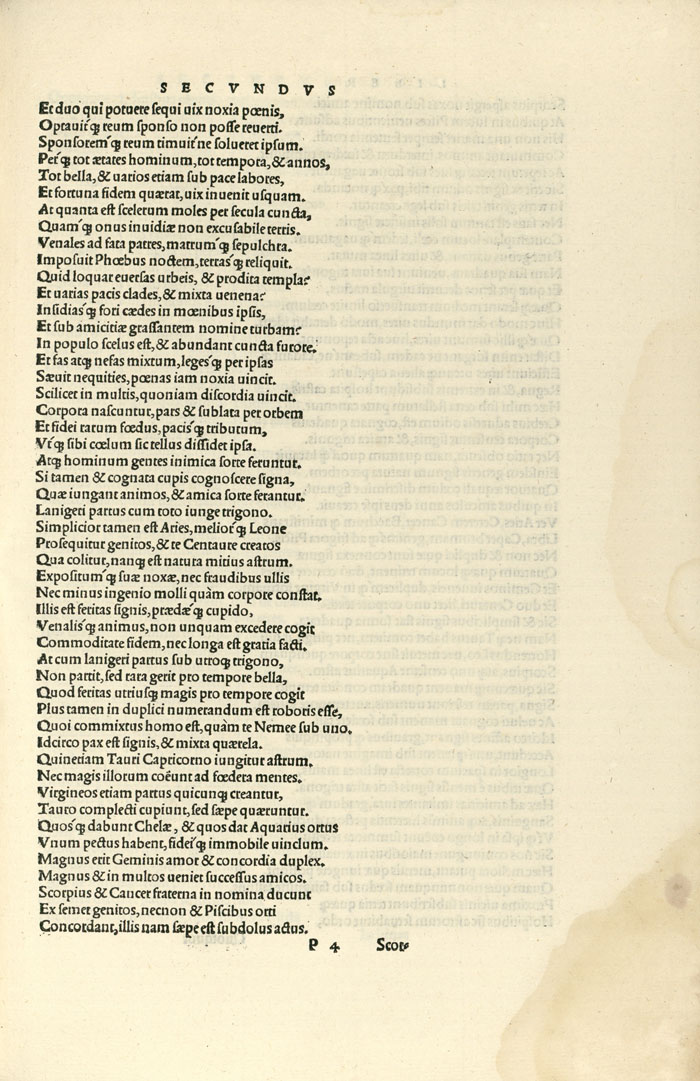 SECVNDVS
Et duo qui potuere sequi uix noxia pœnis,
Optauitq́ꝫ reum sponso non posse reuerti.
Sponsoremq́ꝫ reum timuit ne solueret ipsum.
Perq́ꝫ tot ætates hominum, tot tempora, & annos,
Tot bella, & uarios etiam sub pace labores,
Et fortuna fidem quærat, uix inuenit usquam.
At quanta est scelerum moles per secula cuncta,
Quamq́ꝫ onus inuidiæ non excusabile terris.
Venales ad fata patres, matrumq́ꝫ sepulchra.
Imposuit Phœbus noctem, terrasq́ꝫ reliquit.
Quid loquar euersas urbeis, & prodita templa?
Et uarias pacis clades, & mixta uenena?
Insidiasq́ꝫ fori cædes in mœnibus ipsis,
Et sub amicitiæ grassantem nomine turbam?
In populo scelus est, & abundant cuncta furore.
Et fas atqꝫ nefas mixtum, legesq́ꝫ per ipsas
Sæuit nequities, pœnas iam noxia uincit.
Scilicet in multis, quoniam discordia uincit.
Corpora nascuntur, pars & sublata per orbem
Et fidei rarum fœdus, pacisq́ꝫ tributum,
Vtq́ꝫ sibi cœlum sic tellus dissidet ipsa.
Atqꝫ hominum gentes inimica sorte feruntur.
Si tamen & cognata cupis cognoscere signa,
Quæ iungant animos, & amica sorte ferantur.
Lanigeri partus cum toto iunge trigono.
Simplicior tamen est Aries, meliorq́ꝫ Leone
Prosequitur genitos, & te Centaure creatos
Qua colitur, nanqꝫ est natura mitius astrum.
Expositumq́ꝫ suæ noxæ, nec fraudibus ullis
Nec minus ingenio molli quàm corpore constat.
Illis est feritas signis, prædæq́ꝫ cupido,
Venalisq́ꝫ animus, non unquam excedere cogit
Commoditate fidem, nec longa est gratia facti.
At cum lanigeri partus sub utroqꝫ trigono,
Non partit, sed rara gerit pro tempore bella,
Quod feritas utriusqꝫ magis pro tempore cogit
Plus tamen in duplici numerandum est roboris esse,
Quoi commixtus homo est, quàm te Nemee sub uno.
Idcirco pax est signis, & mixta quærela.
Quinetiam Tauri Capricorno iungitur astrum.
Nec magis illorum coëunt ad fœdera mentes.
Virgineos etiam partus quicunqꝫ creantur,
Tauro complecti cupiunt, sed sæpe quæruntur.
Quosq́ꝫ dabunt Chelæ, & quos dat Aquarius ortus
Vnum pectus habent, fideiq́ꝫ immobile uinclum.
Magnus erit Geminis amor & concordia duplex.
Magnus & in multos ueniet successus amicos.
Scorpius & Cancer fraterna in nomina ducunt
Ex semet genitos, necnon & Piscibus orti
Concordant, illis nam sæpe est subdolus actus.
P 4 Scor⸗